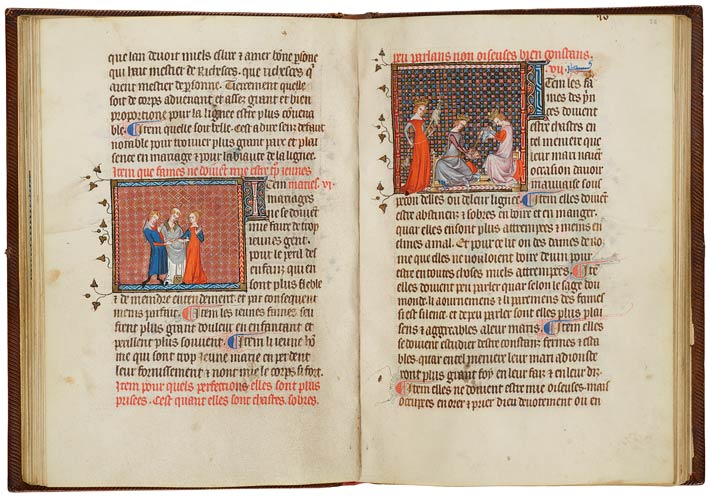 que lan devoit miels eslire et amer bone psone
qui hait mestier de richesses. que richesces qͥ
aient mestier de psonne. Tiercement quelle
soit de corps advenant et assez grant et bien
proporcione pour la lignee estre plus covena
ble. Item quelle soit belle. cest a dire sen defaut
notable pour trouver plus grant paix et plai
sence en mariage et pour la biaute de la lignee.
Item que fames ne doivent mie estre tp jeunes
Item mariees. vi.
mariages
ne se doivent
mie faire de trop
jeunes gent.
pour le peril des
enfans; qui en
sont plus fieble
et de mendre entendement. et par consequent
meins parfaiz. Item les jeunes fames. seu
frent plus grant douleur en enfantant et
perillent plus souvent. Item li jeune ho
me qui sont trop jeune marie en perdent
leur fornissement et nont mie le corps si fort.
Item pour quels perfections elles sont plus
prisees. Cest quant elles sont chastes. sobres.
peu parlans non oiseuses bien constans.
.vii.
Item les fa
mes des pn
ces doivent
estre chastes en
tel meniere que
leur mari naient
occasion davoir
mauvaise sous
pecon delles ou de leur lignee. Item elles doivent
estre abstinenz et sobres en boire et en manger.
quar elles en sont plus attrempees et meins en
clines a mal. Et pour ce lit on des dames de ro
me que elles ne vouloient boire de vin pour
estre en toutes choses miels attrempees. Ite
elles doivent peu parler quar selon le sage du
monde. li aournemens et li paremens des fames
si est silence. et de peu parler sont elles plus plai
sens et aggreables a leur maris. Item elles
se doivent estudier destre constans fermes et esta
bles. quar en tel meniere leur mari adiouste
ront plus grant foy en leur faiz et en leur diz.
Item elles ne doivent estre mie oiseuses. mais
occupees en orer et prier dieu devotement ou en